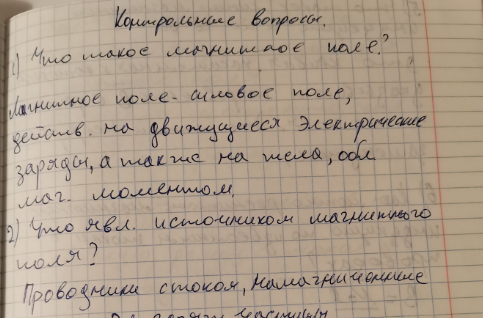 Контрольные вопросы.
1) Что такое магнитное поле?
Магнитное поле - силовое поле,
действ. на движущиеся электрические
заряды, а также на тела, обл.
маг. моментом.
2) Что явл. источником магнитного
поля?
Проводники с током, намагниченные